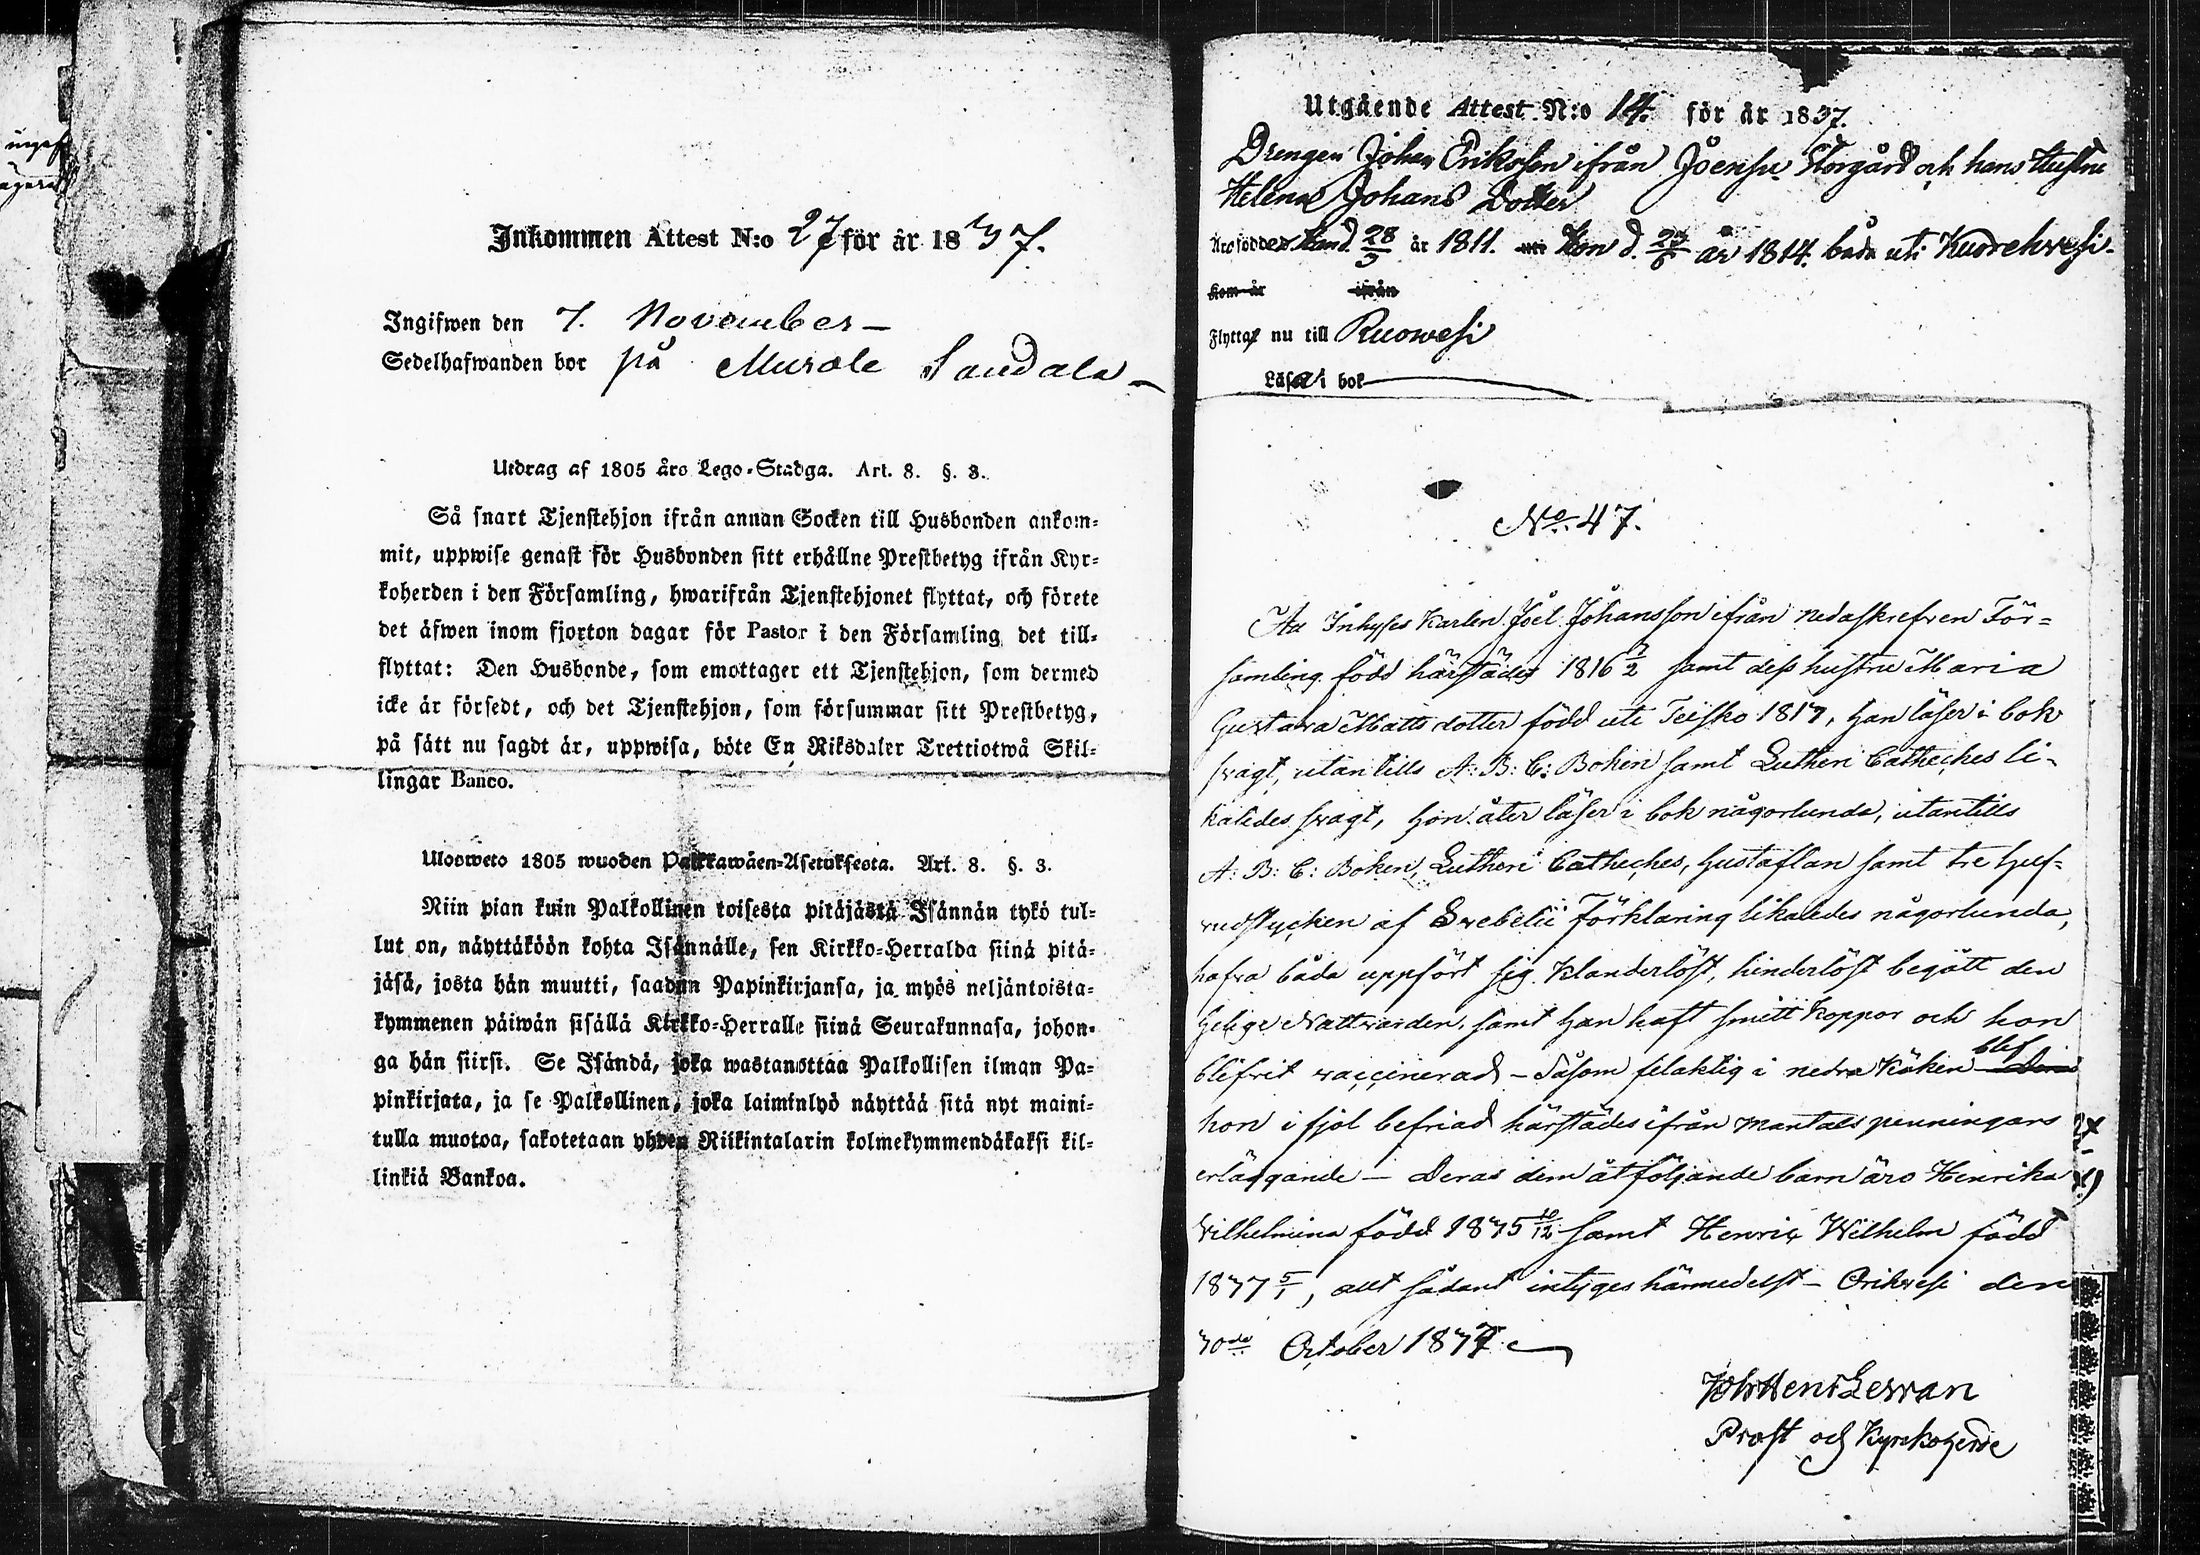 ingif
ägerst
Inkommen Attest N:o 27 för år 1837.
Ingifwen den 7. November –
Sedelhafwanden bor på Murole Sandala –
Utdrag af 1805 års Lego-Stadga. Art. 8. §. 3.
Så snart Tjenstehjon ifrån annan Socken till Husbonden ankom-
mit, uppwise genast för Husbonden sitt erhållne Prestbetyg ifrån Kyr-
koherden i den Församling, hwarifrån Tjenstehjonet flyttat, och förete
det äfwen inom fjorton dagar för Pastor i den Församling det till-
flyttat: Den Husbonde, som emottager ett Tjenstehjon, som dermed
icke är försedt, och det Tjenstehjon, som försummar sitt Prestbetyg,
på sätt nu sagdt är, uppwisa, böte En Riksdaler Trettiotwå Skil-
lingar Banco.
Ulosweto 1805 wuoden Palkkawäen-Asetuksesta. Art. 8. §. 3.
Niin pian kuin Palkollinen toisesta pitäjästä Isännän tykö tul-
lut on, näyttäköön kohta Isännälle, sen Kirkko-Herralda siinä pitä-
jäsä, josta hän muutti, saadun Papinkirjansa, ja myös neljäntoista-
kymmenen päiwän sisällä Kirkko-Herralle siinä Seurakunnasa, johon-
ga hän siirsi. Se Isändä, joka wastanottaa Palkollisen ilman Pa-
pinkirjata, ja se Palkollinen, joka laiminlyö näyttää sitä nyt maini-
tulla muotoa, sakotetaan yhden Riikintalarin kolmekymmendäkaksi kil-
linkiä Bankoa.
Utgående Attest N:o 14. för år 1837.
Drengen Johan Eriksson ifrån Joensu Storgård och hans Hustru
Helena Johans Dotter
Äro födde Han d. 28/3 år 1811. Hon d. 25/6 år 1814. båda uti Kuorehvesi.
Kom år ifrån
Flytta nu till Ruowesi
Läsa i bok
No. 47.
Att Inhyses Karlen Joel Johansson ifrån nedaskrefven För-
samling född härstädes 1816 7/2 samt dess hustru Maria
Gustava Matts dotter född uti Teisko 1817, han läser i bok
svagt, utantills A: B: C: Boken samt Lutheri Catheches li-
kaledes svagt, hon åter läser i bok någorlunda, utantills
A: B: C: Boken, Lutheri Catheches, Hustaflan samt tre Huf-
vudstycken af Svebelii Förklaring likaledes någorlunda,
hafva båda uppfört sig klanderlöst, hinderlöst begått den
Helige Nattvarden, samt han haft smitt Koppor och hon
blifvit vaccinerad – Såsom felaktig i nedra Köken blef
hon i fjol befriad härstädes ifrån Mantals penningars
erläggande – Deras dem åtföljande barn äro Henrika
Vilhelmina född 1835 10/12 samt Henric Wilhelm född
1837 5/1, allt sådant intyges härmedelst – Orihvesi den
30de October 1837.
Joh Henr Lewan
Prost och Kyrkoherde